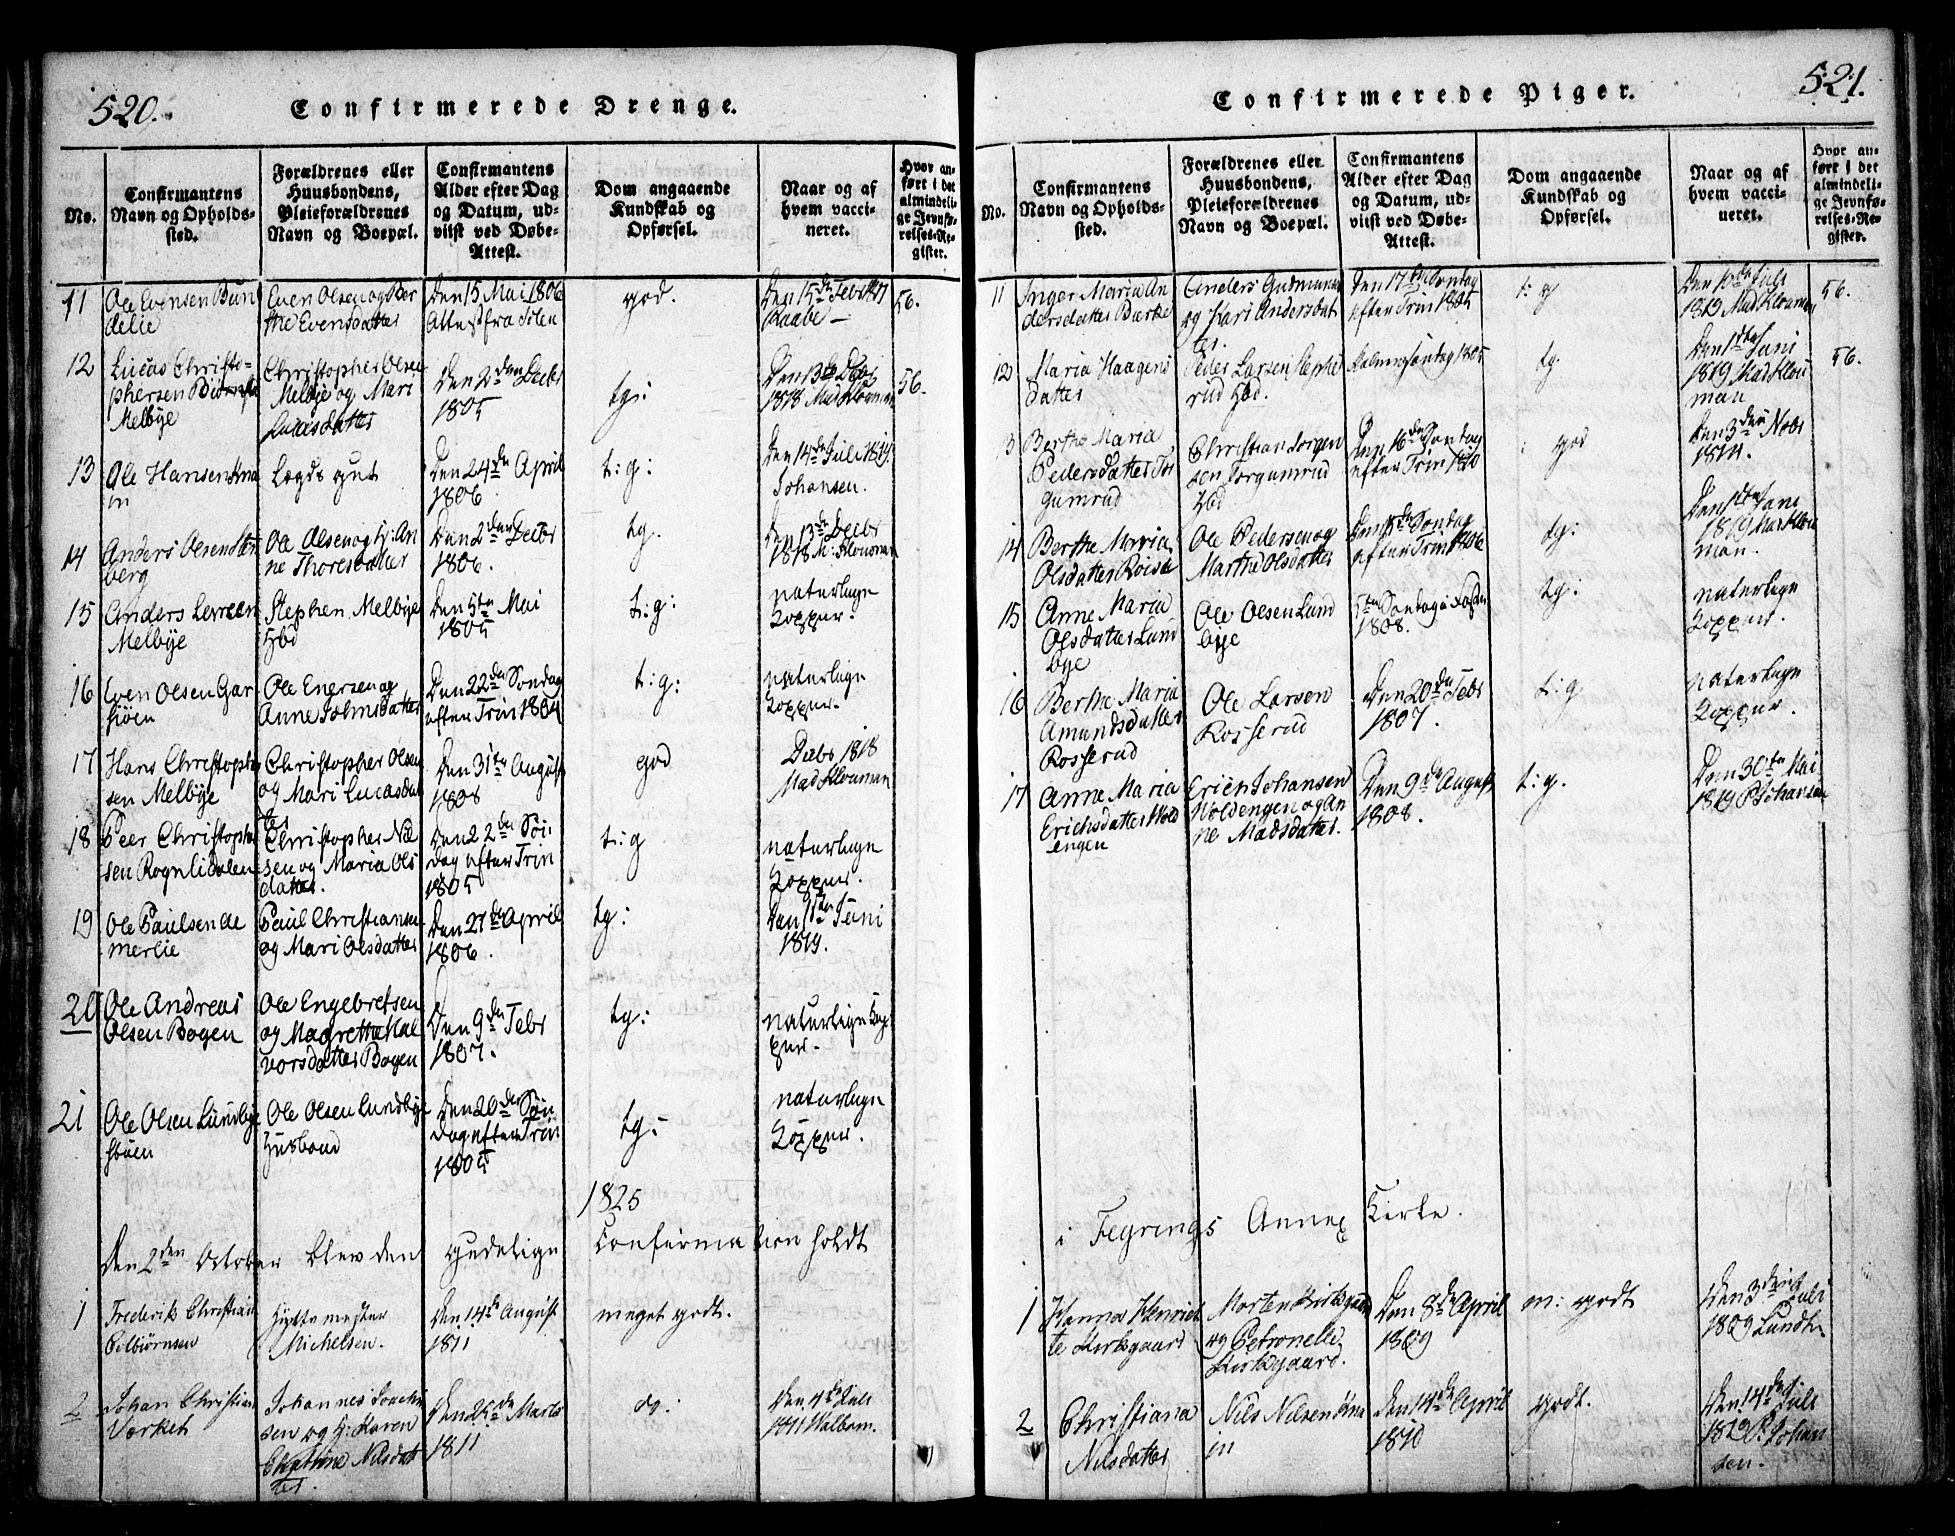 520.
Confirmerede Drenge.
No.
Confirmantens
Navn og Opholds-
sted.
Forældrenes eller
Huusbondens,
Pleieforældrenes
Navn og Boepæl.
Confirmantens
Alder efter Dag
og Datum, ud-
viist ved Døbe-
Attest.
Dom angaaende
Kundskab og
Opførsel.
Naar og af
hvem vacci-
neret.
Hvor an-
ført i det
almindeli-
ge Jevnfø-
relses-Re-
gister.
11
Ole Evensen Bun
delie
Even Olsen og Ber
the Evensdatter
Den 15 Mai 1806
Attest fra Solen
god.
Den 15de Febr
Raabe
56.
12
Lucas Christo-
phersen
Melbye
Christopher Olsen
Melbye og Mari
Lucasdatter
Den 2den Decbr
1805
tg:
Den 13de Decbr
1818 Mad Klouman
56.
13
Ole Hansen
Lægds gut
Den 24de April
1806.
t:g:
Den 14de Juli 1819
Johansen.
14
Anders Olsen
berg
Ole Olsen og h: An
ne Thoresdatter
Den 2den Decbr
1806.
tg.
Den 13de Decbr
1818 M: Klouman
15
Anders Larsen
Melbye
Stephen Melbye
Hbd
Den 5te Mai
1805
t:g:
naturlige
Kopper.
16
Even Olsen Gar
støen
Ole Enersen og
Anne Johnsdatter
Den 22de Søndag
efter Trin 1804
t:g:
naturlige
Kopper.
17
Hans Christopher
sen Melbye
Christopher Olsen
og Mari Lucasdat
ter
Den 31te August
1808
god
Decbr 1818
Mad Klouman
18
Peer Christopher
sen Rognlidalen
Christopher Nil
sen og Maria Ols
datter.
Den 22de Søn
dag efter Trin
1805
t:g
naturlige
Kopper.
19
Ole Paulsen
merlie
Paul Christiansen
og Mari Olsdatter
Den 27de April
1806.
tg:
Den 11te Juni
1819.
20
Ole Andreas
Olsen Bogen
Ole Engebretsen
og Magrethe Hal
vorsdatter Bogen
Den 9de Febr
1807.
tg:
naturlige Kop
per.
21
Ole Olsen Lundbye
støen
Ole Olsen Lundbye
Husbond
Den 20de Søn
dag efter Trin
1805
tg:
naturlige
Kopper.
1825
Den 2den October blev den gudelige Confirmation holdt
1
Frederik Christian
Colbiørnsen
Hyttemester
Michelsen.
Den 14de August
1811
meget godt.
2
Johan Christian
Værket
Johannes Joachim
sen og h: Karen
Chathrine Nilsdat
ter.
Den 25de Marts
1811
do:
Den 4de Juli
1811 Walbom.
521.
Confirmerede Piger.
No.
Confirmantens
Navn og Opholds-
sted.
Forældrenes eller
Huusbondens,
Pleieforældrenes
Navn og Boepæl.
Confirmantens
Alder efter Dag
og Datum, ud-
viist ved Døbe-
Attest.
Dom angaaende
Kundskab og
Opførsel.
Naar og af
hvem vacci-
neret.
Hvor an-
ført i det
almindeli-
ge Jevnfø-
relses-Re-
gister.
11
Inger Maria An
dersdatter Barke
Anders Gudmunds
og Kari Andersdat
ter.
Den 17de Søndag
efter Trin 1805
t: g
Den 10de Juli
1819 Mad Klouman
56.
12
Maria Haagens
datter
Peder Larsen Stephe
rud Hbd.
Palmesøndag 1805
tg.
Den 1ste Juni
1819 Mad Klou
man
56.
13
Berthe Maria
Pedersdatter Tor
gumrud
Christian Torgen
sen Torgumrud
Hbd
Den 16de Søndag
efter Trin 1810
god
Den 3den Nobr
14
Berthe Maria
Olsdatter
Ole Pedersen og
Marthe Olsdatter
Søndag
efter Trin 1806
tg:
Den 1ste Juni
1819 Mad Klou
man.
15
Anne Maria
Olsdatter Lund
bye
Ole Olsen Lund
bye
5te Søndag i Fasten
1808.
tg:
naturlige
Kopper.
16
Berthe Maria
Amundsdatter
Rosserud
Ole Larsen
Rosserud
Den 20de Febr
1807.
t:g
naturlige
Kopper.
17
Anne Maria
Erichsdatter Hold
engen
Erich Johansen
Holdengen og An
ne Madsdatter.
Den 9de August
1808.
t:g.
Den 30te Mai
1819 P Johansen
i Feyrings Annex Kirke.
1
Hanna Henriet
te Kirksgaard
Morten Kirksgaard
og Petronelle
Kirksgaard.
Den 8de April
1809
m: godt
Den 3die Juli
1809 Lundh
2
Christiana
Nilsdatter
Nils Nilsen
Den 14de April
1810
godt.
Den 14de Juli
1819 P: Johan
sen.